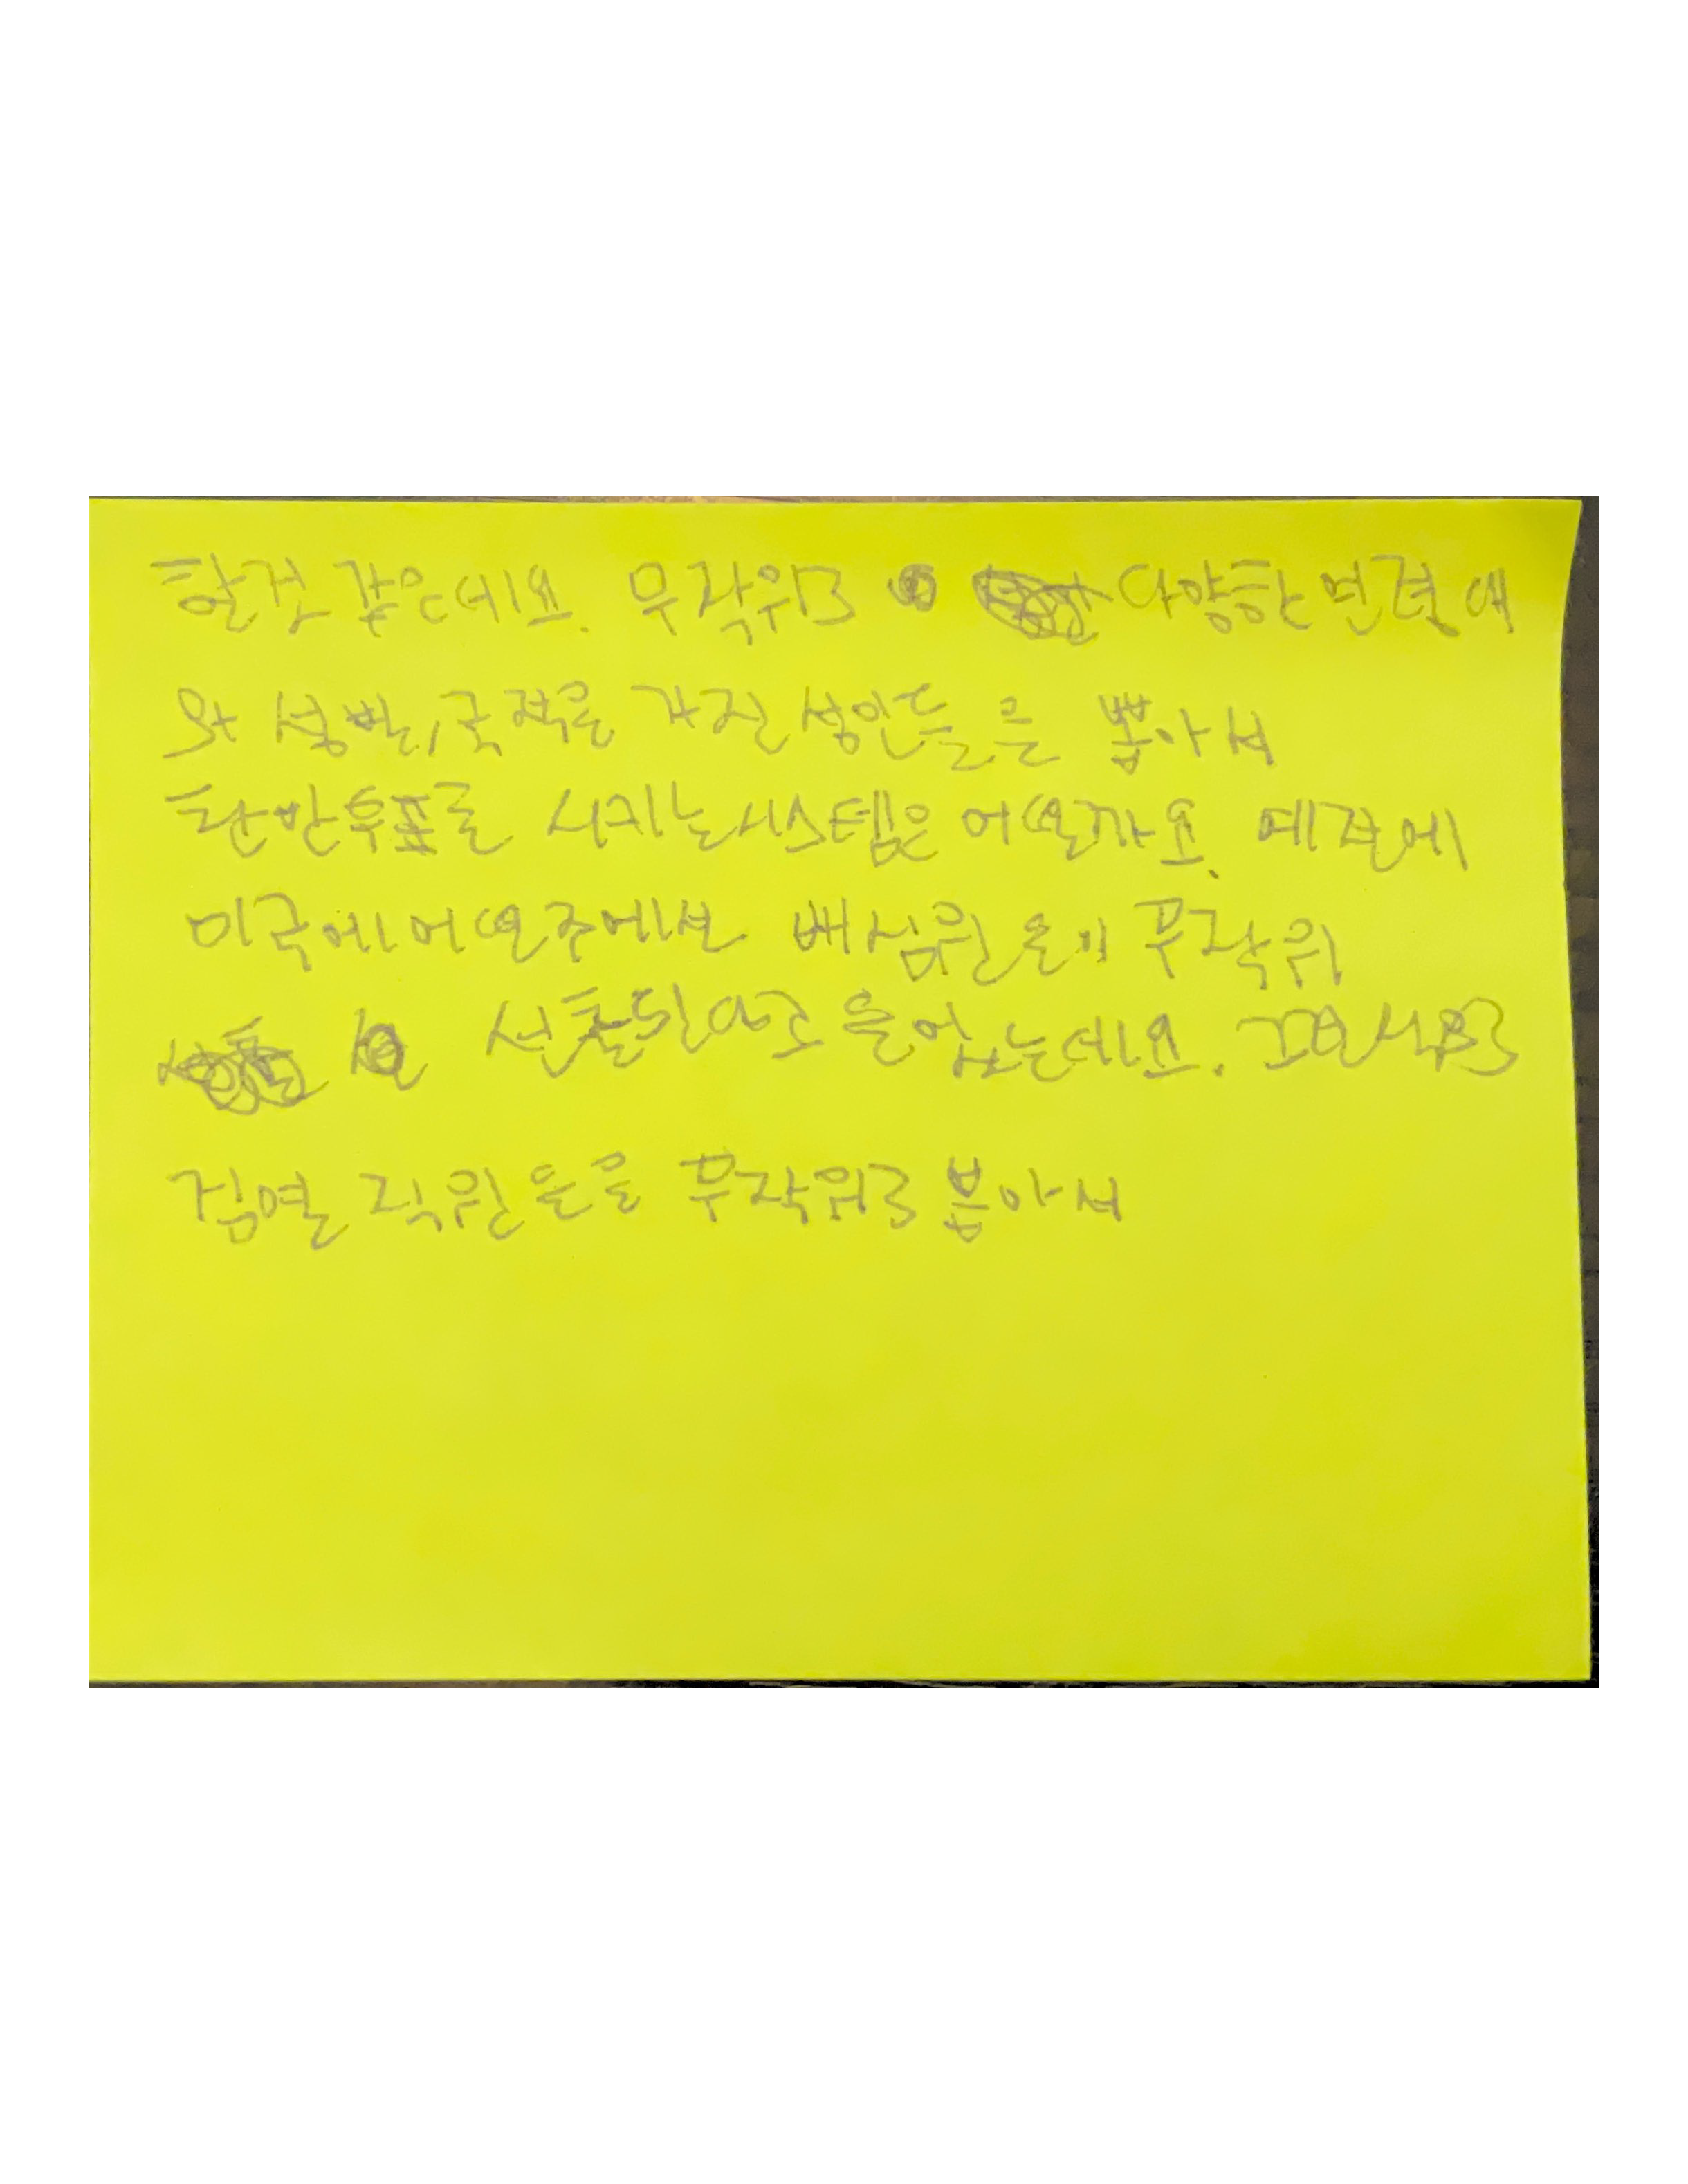 할것 같은데요. 무작위로 다양한 연령대
와 성별, 국적을 가진 성인들을 뽑아서
찬반투표를 시키는 시스템은 어떨까요. 예전에
미국에 어떤 주에서 배심원들이 무작위
선출된다고 들었는데요. 그런식으로
검열 직원들을 무작위로 뽑아서